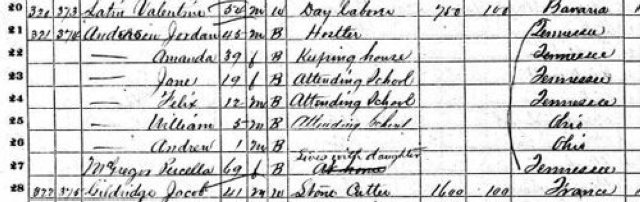 20 320 373 Latin Valentine 54 M W Day Labore 750 100 Bavaria
21 321 374 Anderson Jordan 45 M B Hostler Tennessee
22 — Amanda 39 f B Keeping house Tennessee
23 — Jane 19 f B Attending School Tennessee
24 — Felix 12 M B Attending School Tennessee
25 — William 5 M B Attending School Ohio
26 — Andrew 1 M B Ohio
Lives with daughter
27 McGregor Percella 69 f B At home Tennessee
28 322 375 Jacob 41 M W Stone Cutter 1600 100 France